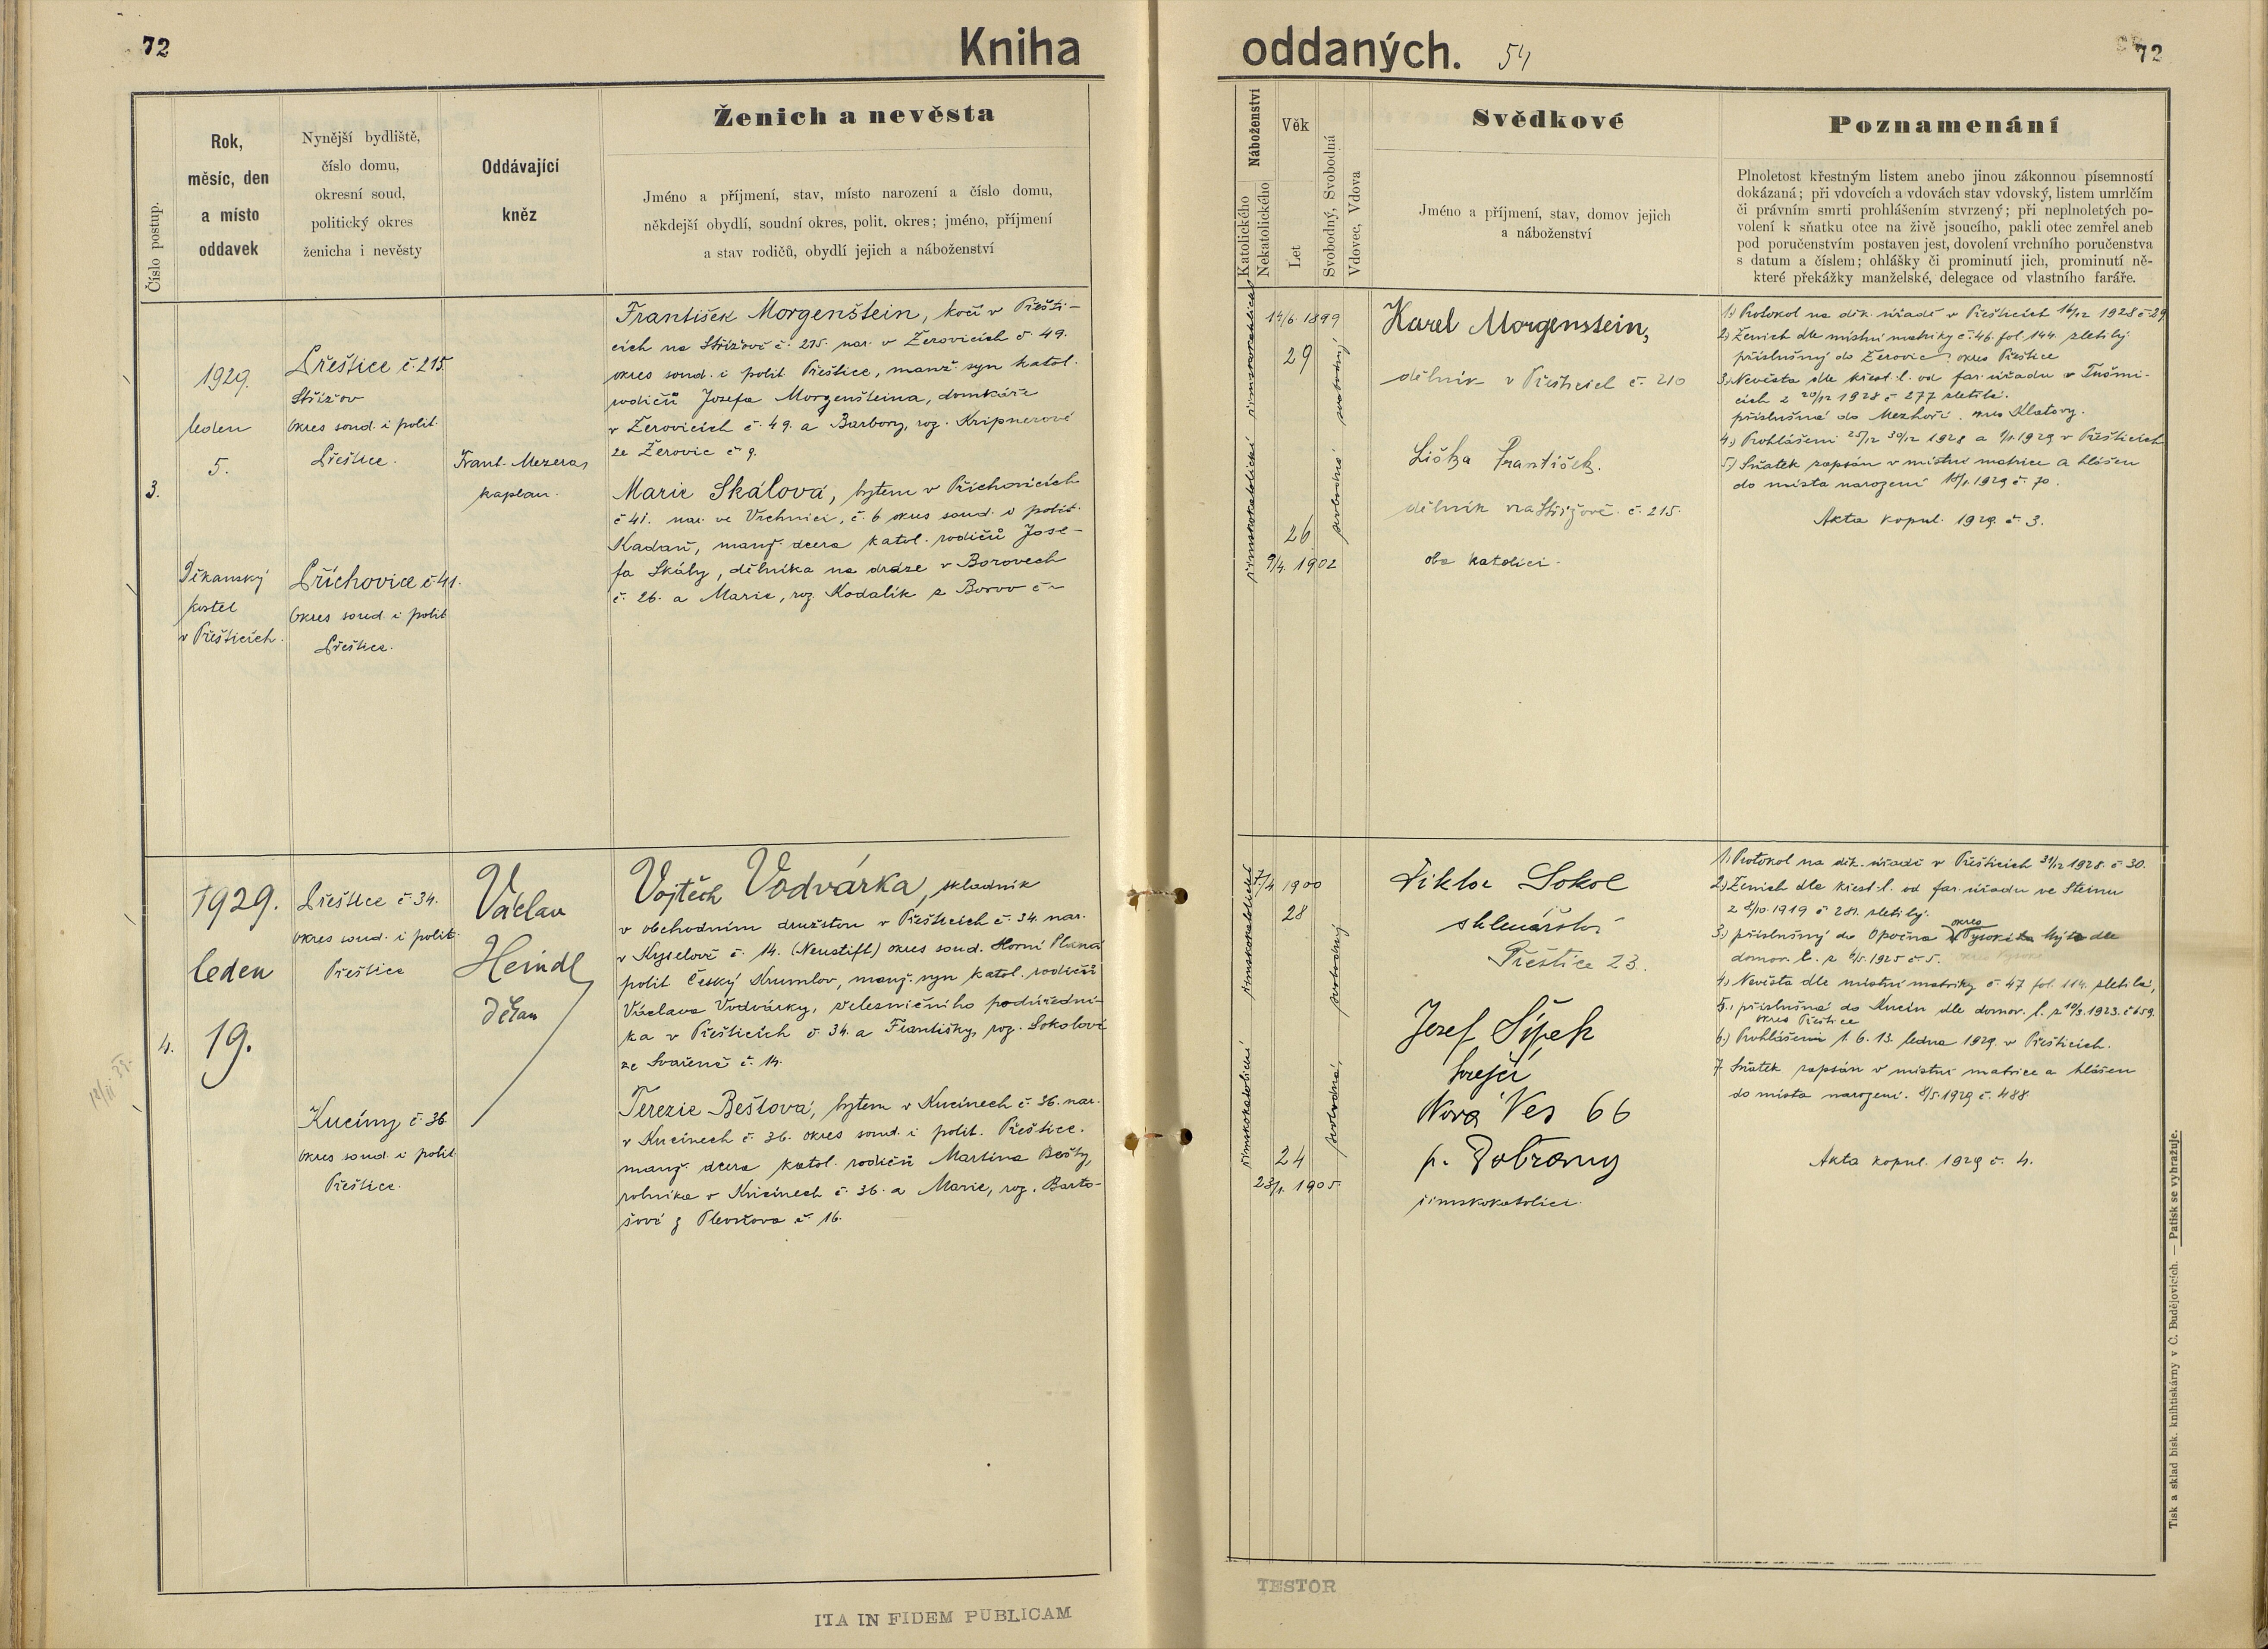 72
Kniha
Číslo postup.
Rok,
měsíc, den
a místo
oddavek
Nynější bydliště,
číslo domu,
okresní soud,
politický okres
ženicha i nevěsty
Oddávající
kněz
Ženich a nevěsta
Jméno a příjmení, stav, místo narození a číslo domu,
někdejší obydlí, soudní okres, polit. okres; jméno, příjmení
a stav rodičů, obydlí jejich a náboženství
3.
1929.
leden
5.
Děkanský
kostel
v Přešticích.
Přeštice č. 215.
Střížov
okres soud. i polit.
Přeštice.
Příchovice č 41.
okres soud. i polit
Přeštice.
Frant. Mezera,
kaplan.
František Morgenštein, kočí v Přešti-
cích na Střížově č. 215. nar. v Žerovicích č 49.
okres soud. i polit. Přeštice, manž. syn katol.
rodičů Josefa Morgenšteina, domkáře
v Žerovicích č. 49. a Barbory, roz. Kripnerové
ze Žerovic č 9.
Marie Skálová, bytem v Příchovicích
č 41. nar. ve Vrchnici, č. 6 okres soud. i polit.
Kadaň, manž. dcera katol. rodičů Jose-
fa Skály, dělníka na dráze v Borovech
č. 26. a Marie, roz. Kodalík z Borov č -
4.
1929.
leden
19.
Přeštice č 34.
okres soud. i polit.
Přeštice
Kucíny č 36
okres soud. i polit
Přeštice.
Václav
Heindl
děkan
Vojtěch Vodvárka, skladník
v obchodním družstvu v Přešticích č. 34. nar.
v Kyselově č. 14. (Neustift) okres soud. Horní Planá
polit Český Krumlov, manž. syn katol. rodičů
Václava Vodvárky, železničního podúředni-
ka v Přešticích č. 34. a Františky, roz. Sokolové
ze Svařeně č. 14.
Terezie Beštová, bytem v Kucínech č 36. nar.
v Kucínech č. 36. okres soud. i polit. Přeštice.
manž. dcera katol. rodičů Martina Bešty,
rolníka v Kucínech č. 36. a Marie, roz. Barto-
šové z Plevňova č. 16.
12/II 39.
ITA IN FIDEM PUBLICAM
oddaných.
54
72
Náboženství
Katolického
Nekatolického
Věk
Let
Svobodný, Svobodná
Vdovec, Vdova
Svědkové
Jméno a příjmení, stav, domov jejich
a náboženství
Poznamenání
Plnoletost křestným listem anebo jinou zákonnou písemností
dokázaná; při vdovcích a vdovách stav vdovský, listem umrlčím
či právním smrti prohlášením stvrzený; při neplnoletých po-
volení k sňatku otce na živě jsoucího, pakli otec zemřel aneb
pod poručenstvím postaven jest, dovolení vrchního poručenstva
s datum a číslem; ohlášky či prominutí jich, prominutí ně-
které překážky manželské, delegace od vlastního faráře.
římskokatolické
římskokatolické
14/6. 1899
29
26
9/4. 1902
svobodný
svobodná
Karel Morgenstein,
dělník v Přešticích č. 210
Liška František.
dělník na Střížově č. 215.
oba katolíci.
1.) Protokol na děk. úřadě v Přešticích 16/12 1928 č 29
2.) Ženich dle místní matriky č. 46. fol. 144. zletilý
příslušný do Žerovic, okres Přeštice
3.) Nevěsta dle křest. l. od far. úřadu v Tušmi-
cích z 20/12 1928 č 277 zletilá.
příslušná do Mezhoří. okres Klatovy.
4.) Prohlášeni 25/12 30/12 1928 a 1/1. 1929 v Přešticích
5.) Sňatek zapsán v místní matrice a hlášen
do místa narození 18/1. 1929 č. 70.
Akta kopul. 1929. č. 3.
římskokatolické
římskokatolické
7/4 1900
28
24
23/1. 1905.
svobodný
svobodná,
Viktor Sokol
sklenářství
Přeštice 23.
Josef Šípek
krejčí
Nová Ves 66
p. Dobřany
římskokatolíci.
1. Protokol na děk. úřadě v Přešticích 31/12 1928. č 30.
2.) Ženich dle křest. l. od far. úřadu ve Steinu
z 8/10. 1919 č 281. zletilý.
3.) příslušný do Opočna okres Vysoké Mýto dle
domov. l. z 6/5. 1925 č 5.
4.) Nevěsta dle místní matriky č. 47 fol. 114. zletilá,
5., příslušná do Kucín dle domov. l. z 10/3. 1923. č 659.
okres Přeštice
6.) Prohlášeni 1. 6. 13. ledna 1929. v Přešticích.
7. Sňatek zapsán v místní matrice a hlášen
do místa narození. 8/5 1929 č. 488
Akta kopul. 1929 č. 4.
Tisk a sklad bisk. knihtiskárny v Č. Budějovicích. — Patisk se vyhražuje.
TESTOR